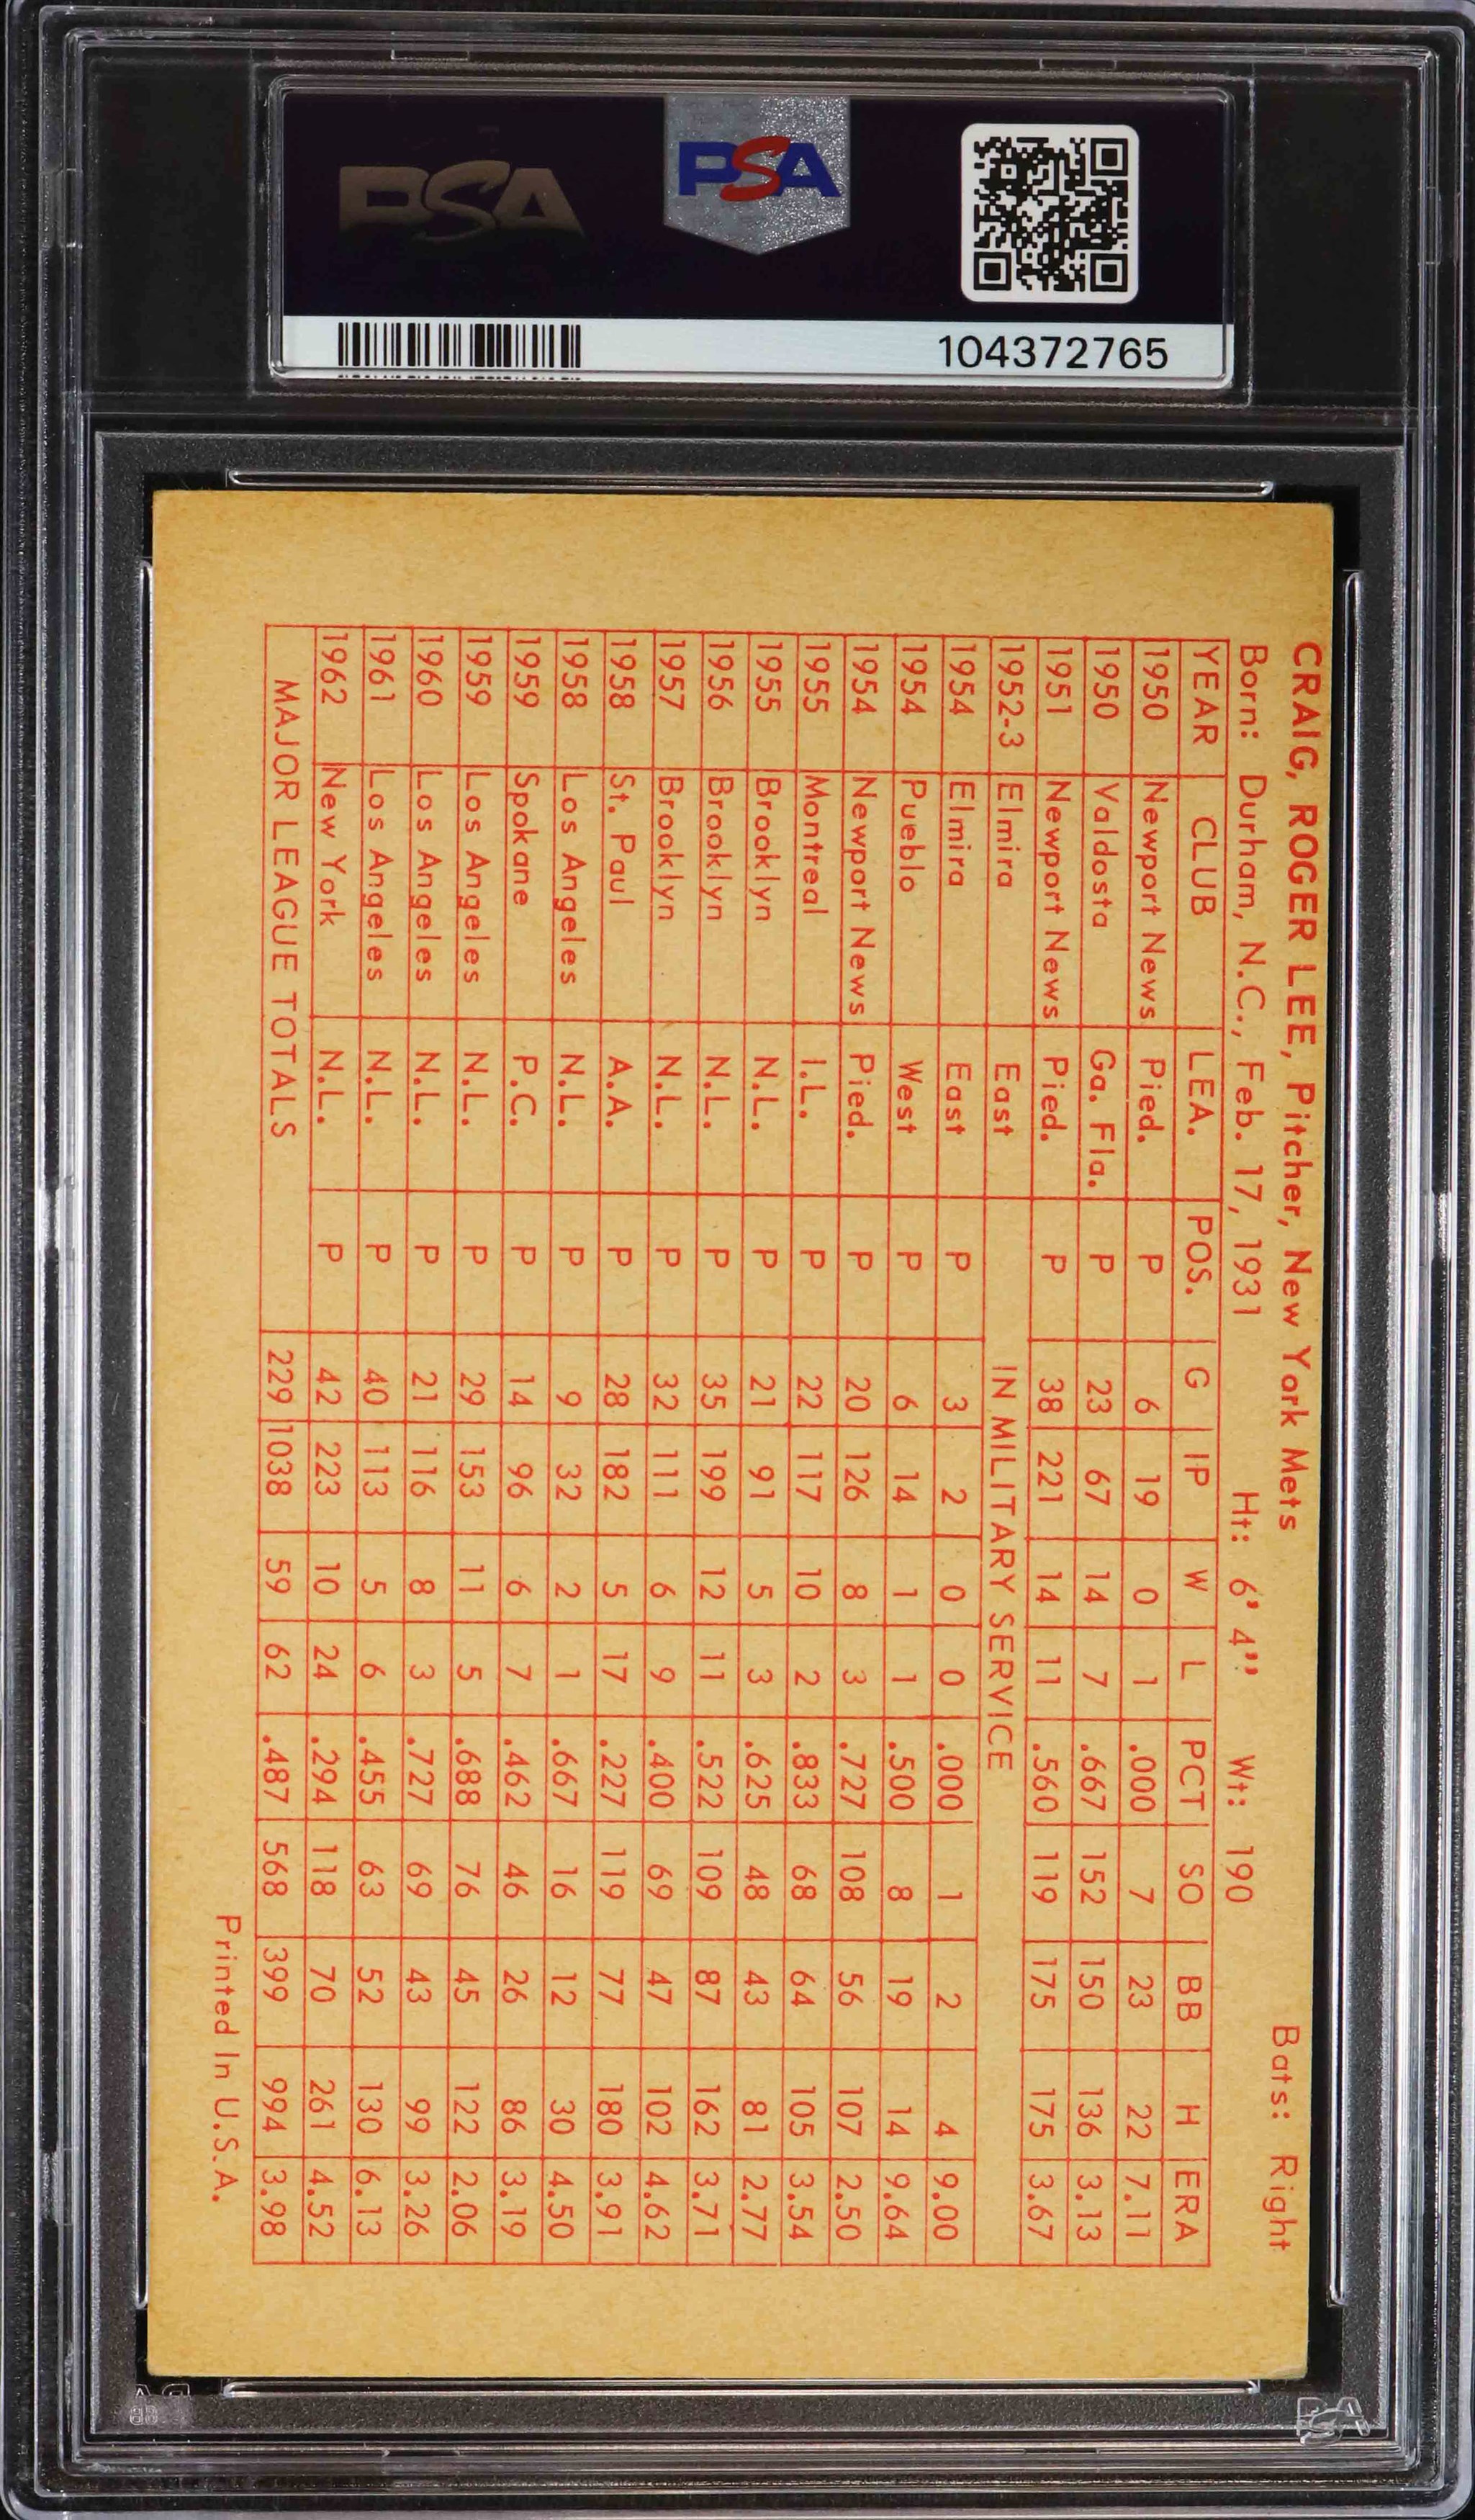 PSA
PSA
104372765
CRAIG, ROGER LEE, Pitcher, New York Mets Bats: Right
Born: Durham, N.C., Feb. 17, 1931 Ht: 6' 4" Wt: 190
YEAR CLUB LEA. POS. G IP W L PCT SO BB H ERA
1950 Newport News Pied. P 6 19 0 1 .000 7 23 22 7.11
1950 Valdosta Ga. Fla. P 23 67 14 7 .667 152 150 136 3.13
1951 Newport News Pied. P 38 221 14 11 .560 119 175 175 3.67
1952-3 Elmira East IN MILITARY SERVICE
1954 Elmira East P 3 2 0 0 .000 1 2 4 9.00
1954 Pueblo West P 6 14 1 1 .500 8 19 14 9.64
1954 Newport News Pied. P 20 126 8 3 .727 108 56 107 2.50
1955 Montreal I.L. P 22 117 10 2 .833 68 64 105 3.54
1955 Brooklyn N.L. P 21 91 5 3 .625 48 43 81 2.77
1956 Brooklyn N.L. P 35 199 12 11 .522 109 87 162 3.71
1957 Brooklyn N.L. P 32 111 6 9 .400 69 47 102 4.62
1958 St. Paul A.A. P 28 182 5 17 .227 119 77 180 3.91
1958 Los Angeles N.L. P 9 32 2 1 .667 16 12 30 4.50
1959 Spokane P.C. P 14 96 6 7 .462 46 26 86 3.19
1959 Los Angeles N.L. P 29 153 11 5 .688 76 45 122 2.06
1960 Los Angeles N.L. P 21 116 8 3 .727 69 43 99 3.26
1961 Los Angeles N.L. P 40 113 5 6 .455 63 52 130 6.13
1962 New York N.L. P 42 223 10 24 .294 118 70 261 4.52
MAJOR LEAGUE TOTALS 229 1038 59 62 .487 568 399 994 3.98
Printed In U.S.A.
PSA